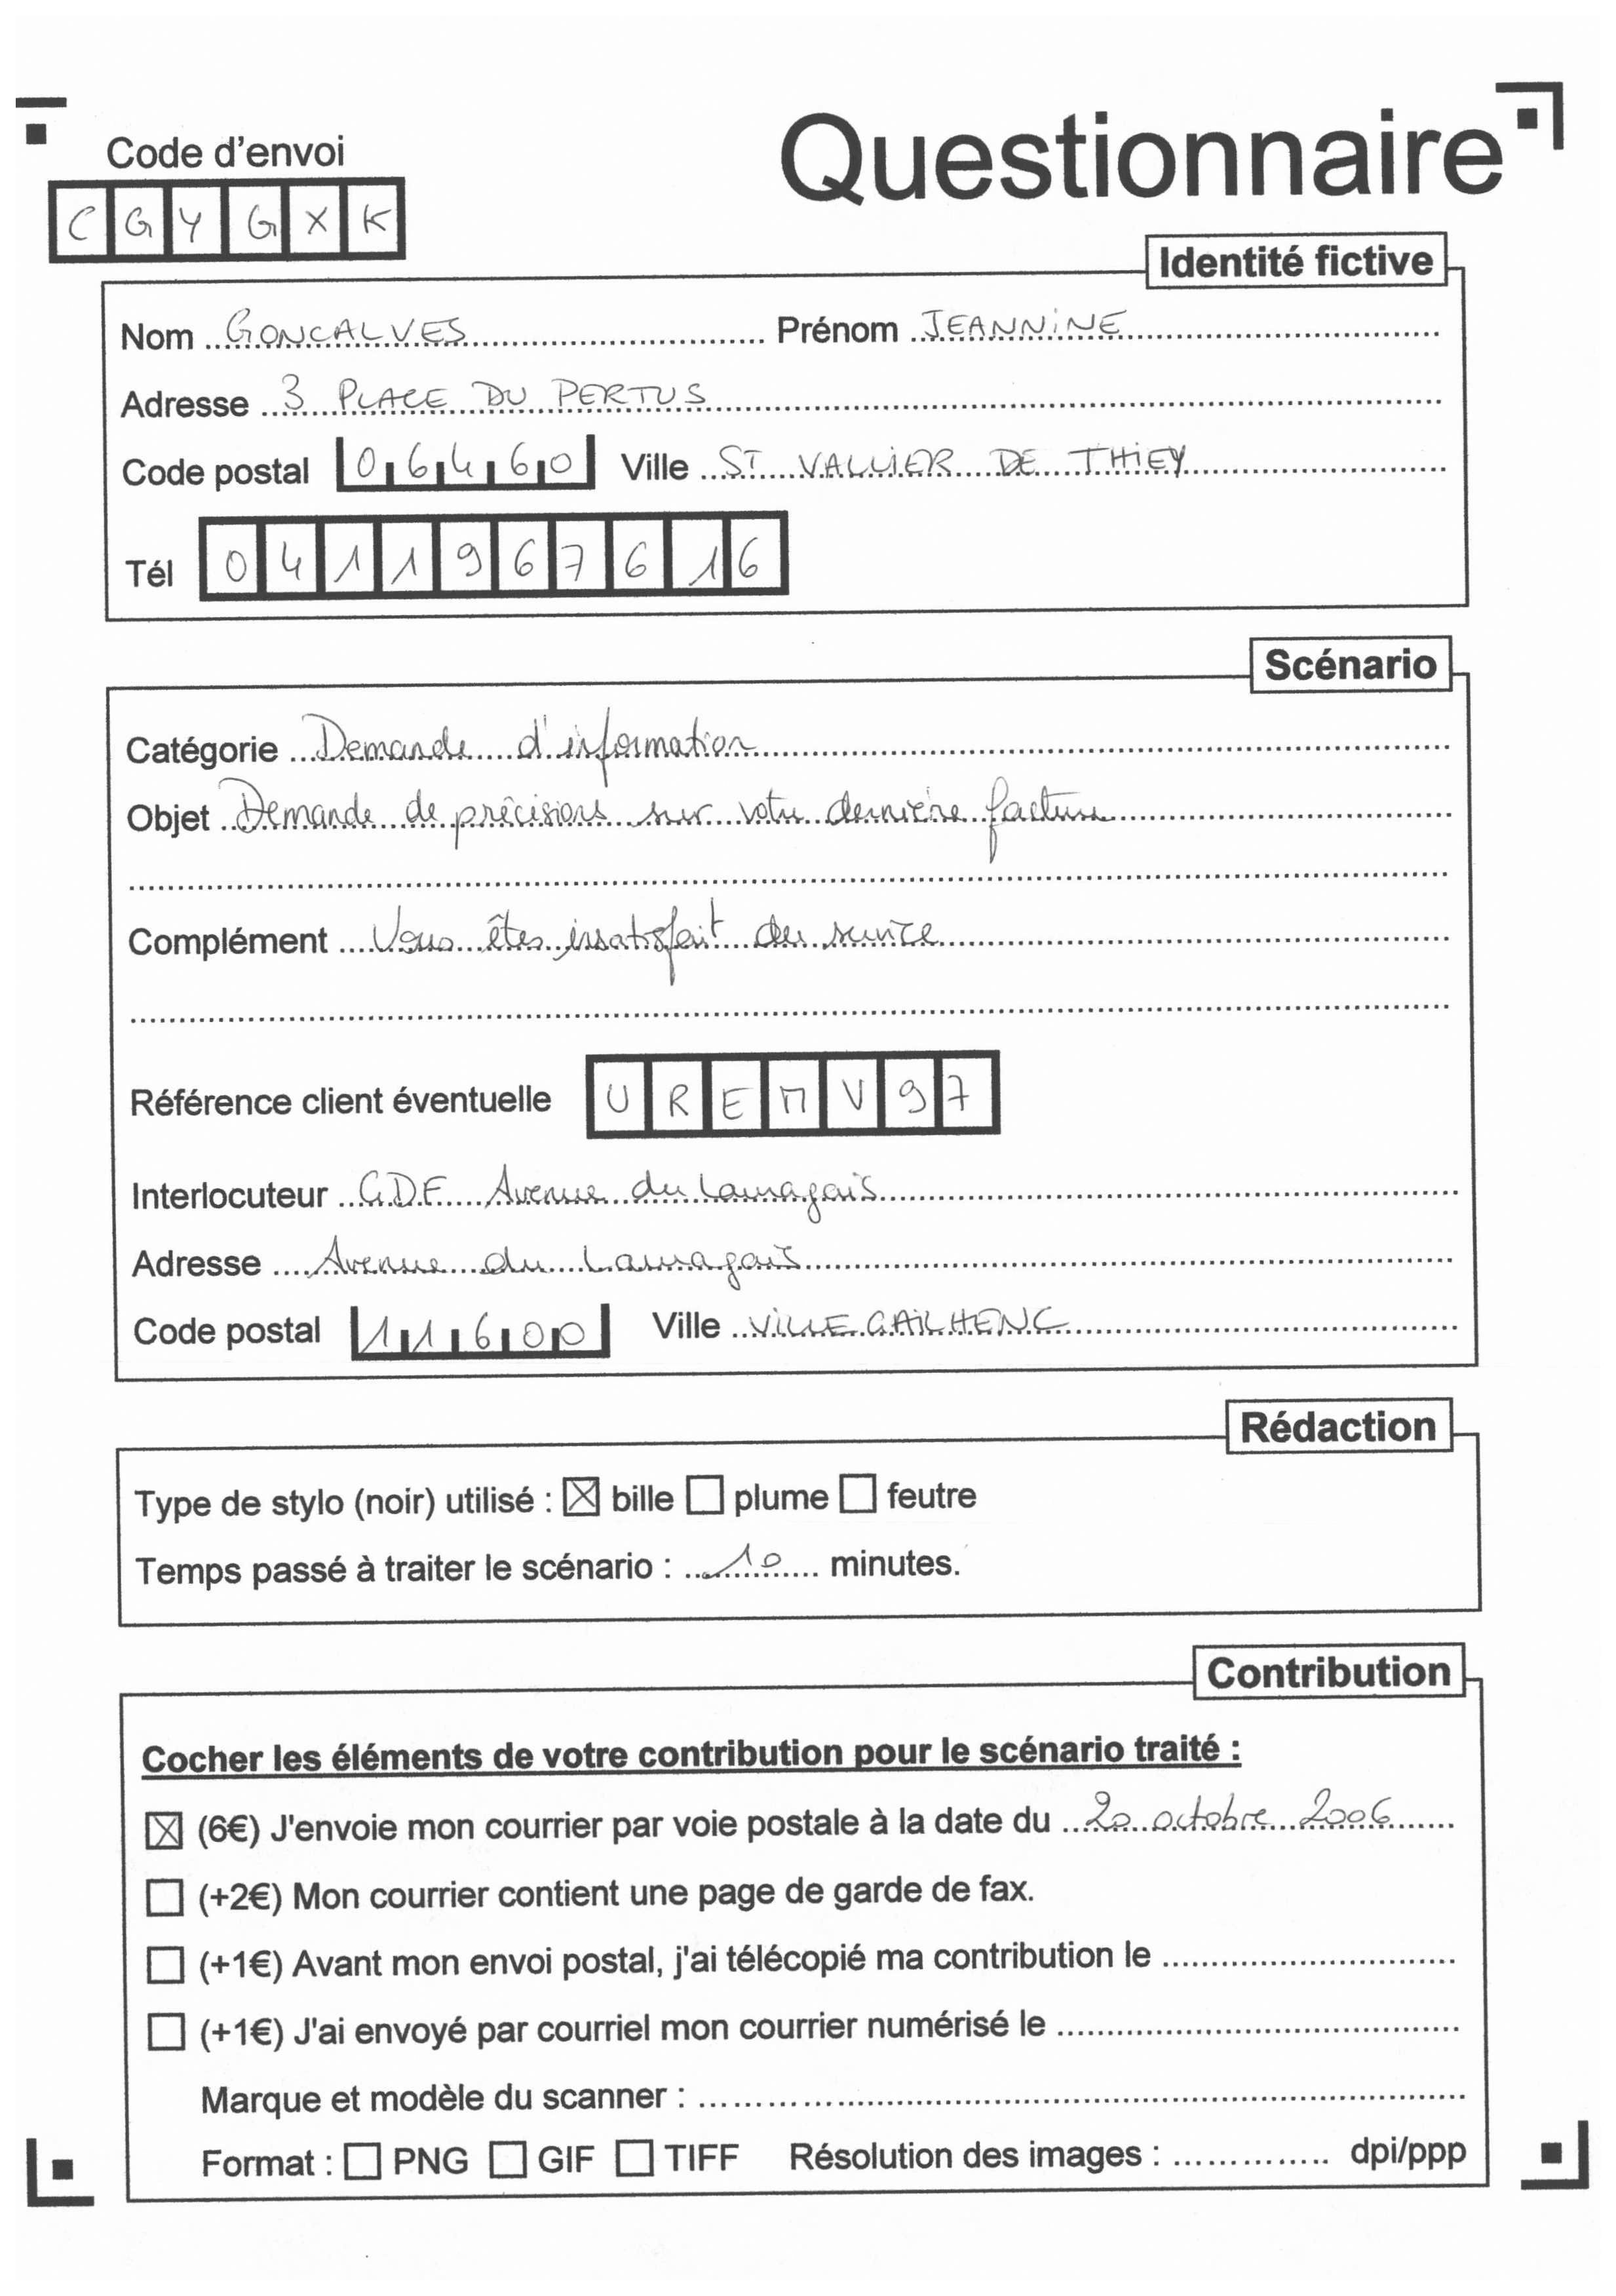 Questionnaire
Code d'envoi
CGYGXK
Identité fictive
Nom GONCALVES Prénom JEANNINE
Adresse 3 PLACE DU PERTUS
Code postal 06460 Ville ST VALLIER DE THIEY
Tél 0411967616
Scénario
Catégorie Demande d'information
Objet Demande de précisions sur votre dernière facture
Complément Vous êtes insatisfait du service
Référence client éventuelle UREMV97
Interlocuteur GDF Avenue du Lauragais
Adresse Avenue du Lauragais
Code postal 11600 Ville VILLEGAILHENC
Rédaction
Type de stylo (noir) utilisé : ☒ bille ☐ plume ☐ feutre
Temps passé à traiter le scénario : 10 minutes.
Contribution
Cocher les éléments de votre contribution pour le scénario traité :
☒ (6€) J'envoie mon courrier par voie postale à la date du 20 octobre 2006
☐ (+2€) Mon courrier contient une page de garde de fax.
☐ (+1€) Avant mon envoi postal, j'ai télécopié ma contribution le
☐ (+1€) J'ai envoyé par courriel mon courrier numérisé le
Marque et modèle du scanner :
Format : ☐ PNG ☐ GIF ☐ TIFF Résolution des images : dpi/ppp